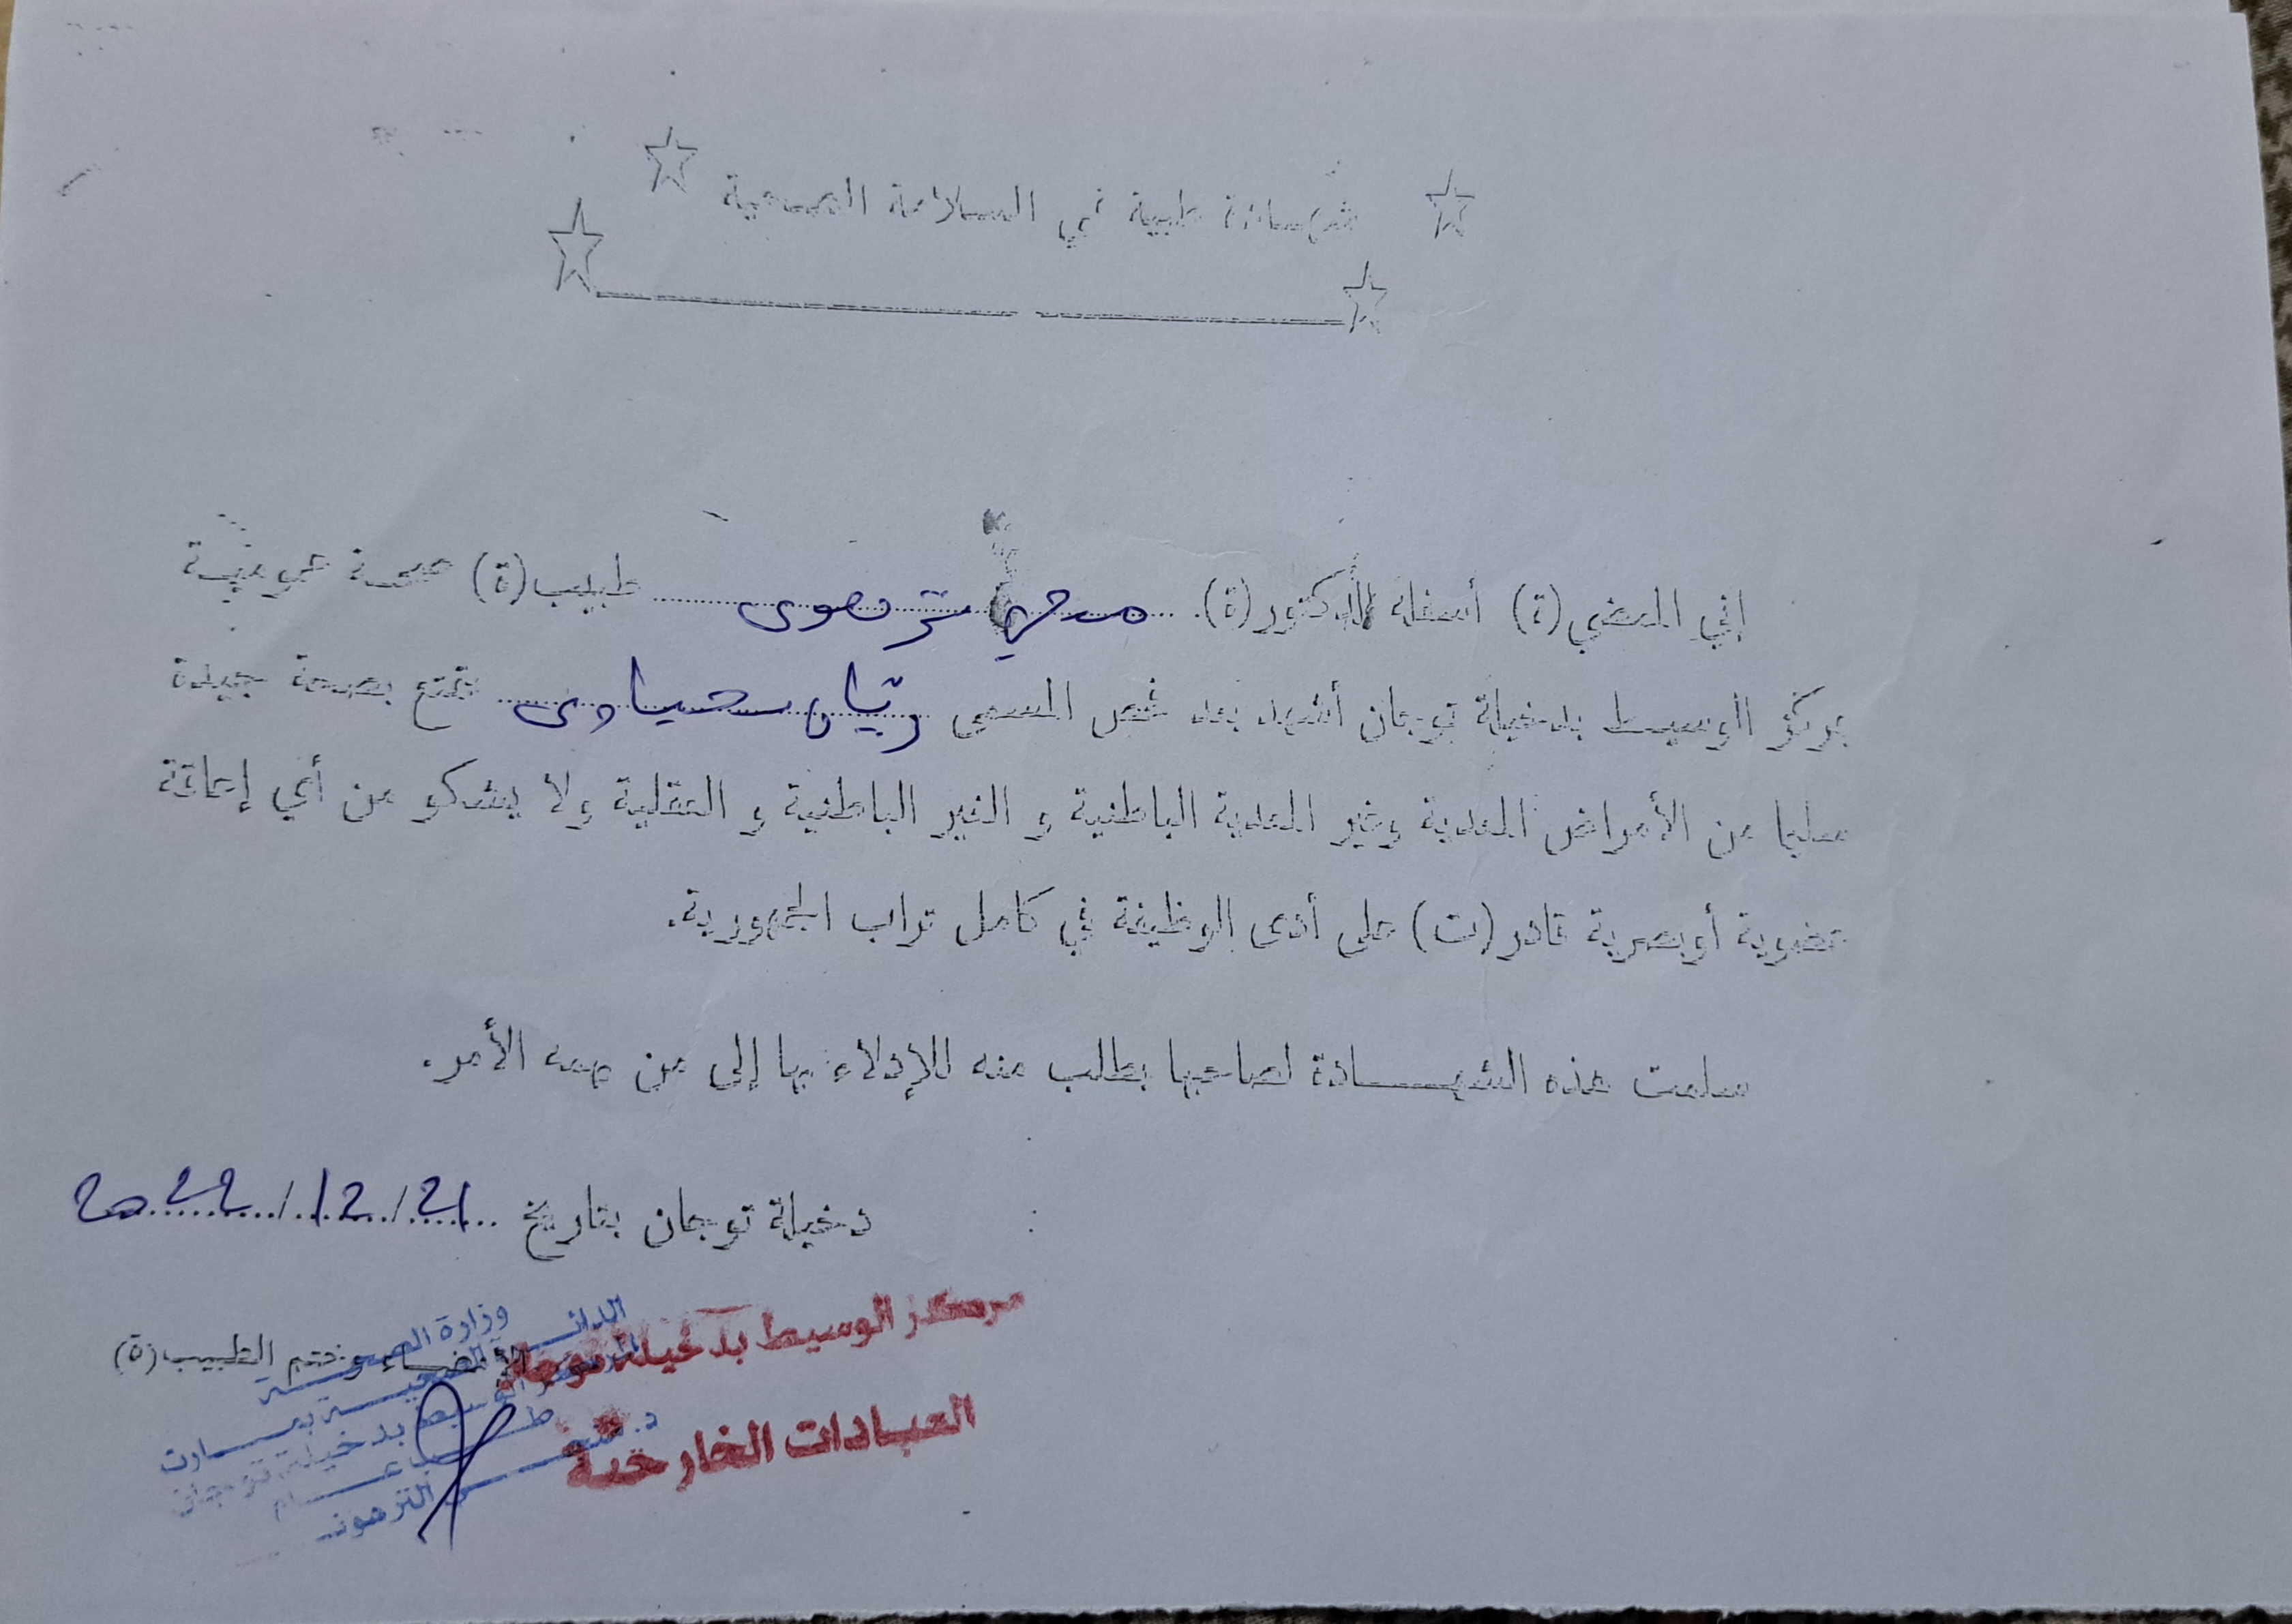 شهادة طبية في السلامة الصحية
إني الممضي (ة) أسفله الدكتور (ة). طبيب (ة) صحة عمومية
بمركز الوسيط بدخيلة توجان أشهد بعد فحص المسمى ريان سحباوي تمتع بصحة جيدة
سليما من الأمراض المعدية وغير المعدية الباطنية و الغير الباطنية و العقلية ولا يشكو من أي إعاقة
عضوية أوبصرية قادر (ت) على أدى الوظيفة في كامل تراب الجمهورية.
سلمت هذه الشهــــادة لصاحبها بطلب منه للإدلاء بها إلى من يهمه الأمر.
دخيلة توجان بتاريخ 21/12/2022
الإمضاء وختم الطبيب (ة)
مركز الوسيط بدخيلة توجان
العيادات الخارجية
وزارة الصحة
بدخيلة توجان